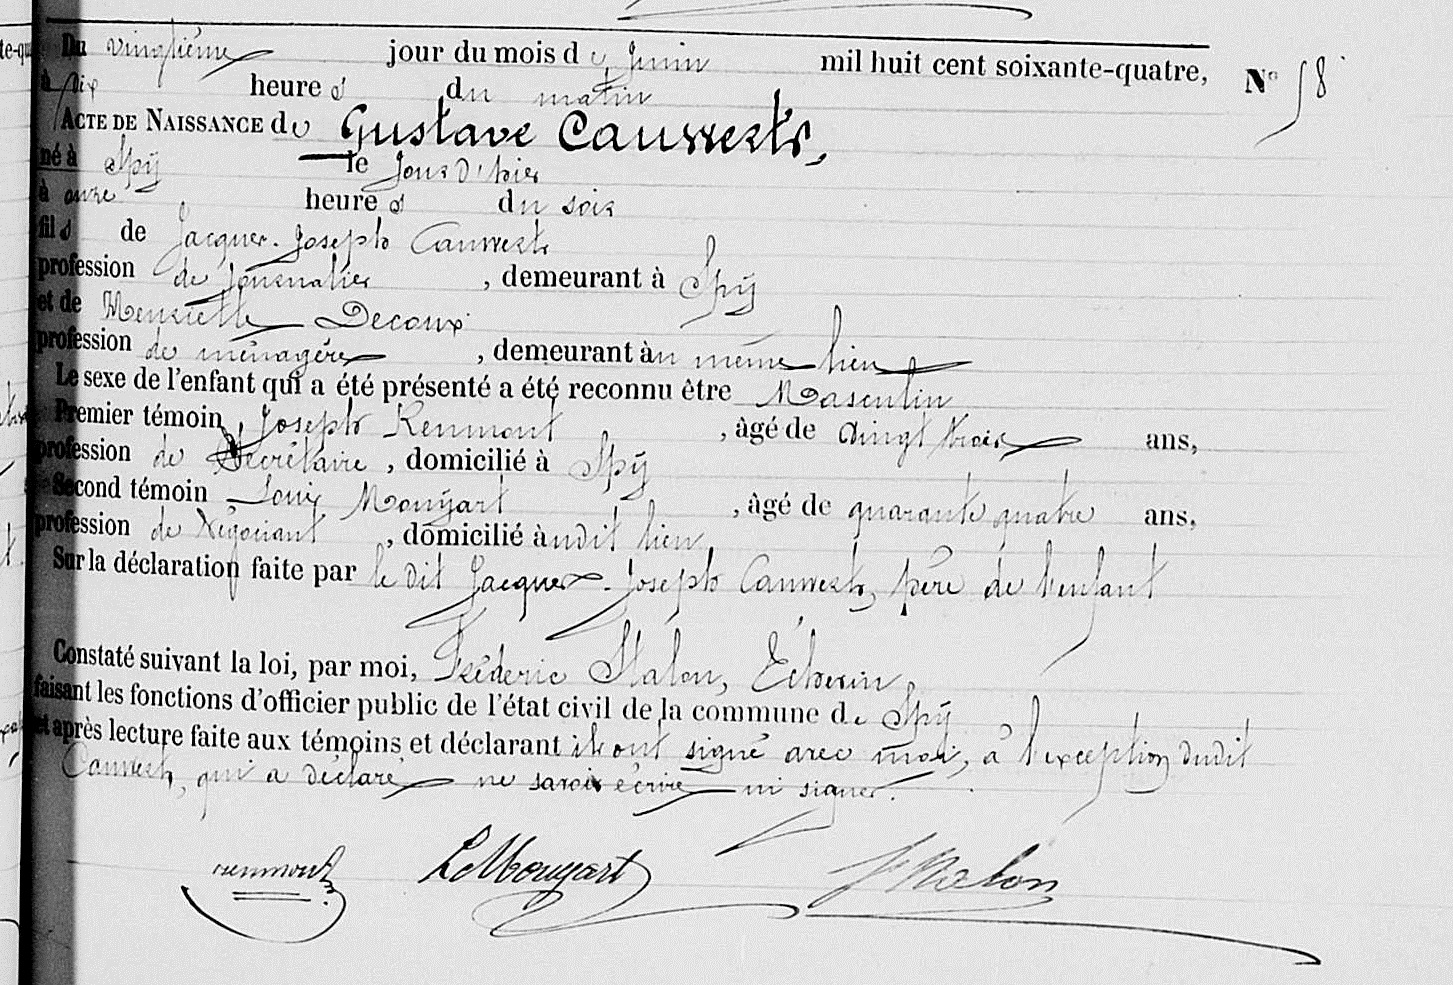 Du vingtième jour du mois de Juin mil huit cent soixante-quatre, N° 58
à dix heures du matin
ACTE DE NAISSANCE de Gustave Cauwerts,
né à Spÿ le jour d'hier
à onze heures du soir
fils de Jacques-Joseph Cauwerts
profession de journalier, demeurant à Spÿ
et de Henriette Decoux
profession de ménagère, demeurant àu même lieu
Le sexe de l'enfant qui a été présenté a été reconnu être Masculin
Premier témoin, Joseph Renmont, âgé de vingt trois ans,
profession de Secrétaire, domicilié à Spÿ
Second témoin Louis Mouÿart, âgé de quarante quatre ans,
profession de Négociant, domicilié àudit lieu,
Sur la déclaration faite par le dit Jacques-Joseph Cauwerts, père de l'enfant
Constaté suivant la loi, par moi, Fréderic Stalon, Echevin,
faisant les fonctions d'officier public de l'état civil de la commune de Spÿ
et après lecture faite aux témoins et déclarant ils ont signé avec moi, à l'exception dudit
Cauwerts, qui a déclaré ne savoir écrire ni signer.
renmont LMouyart f Stalon